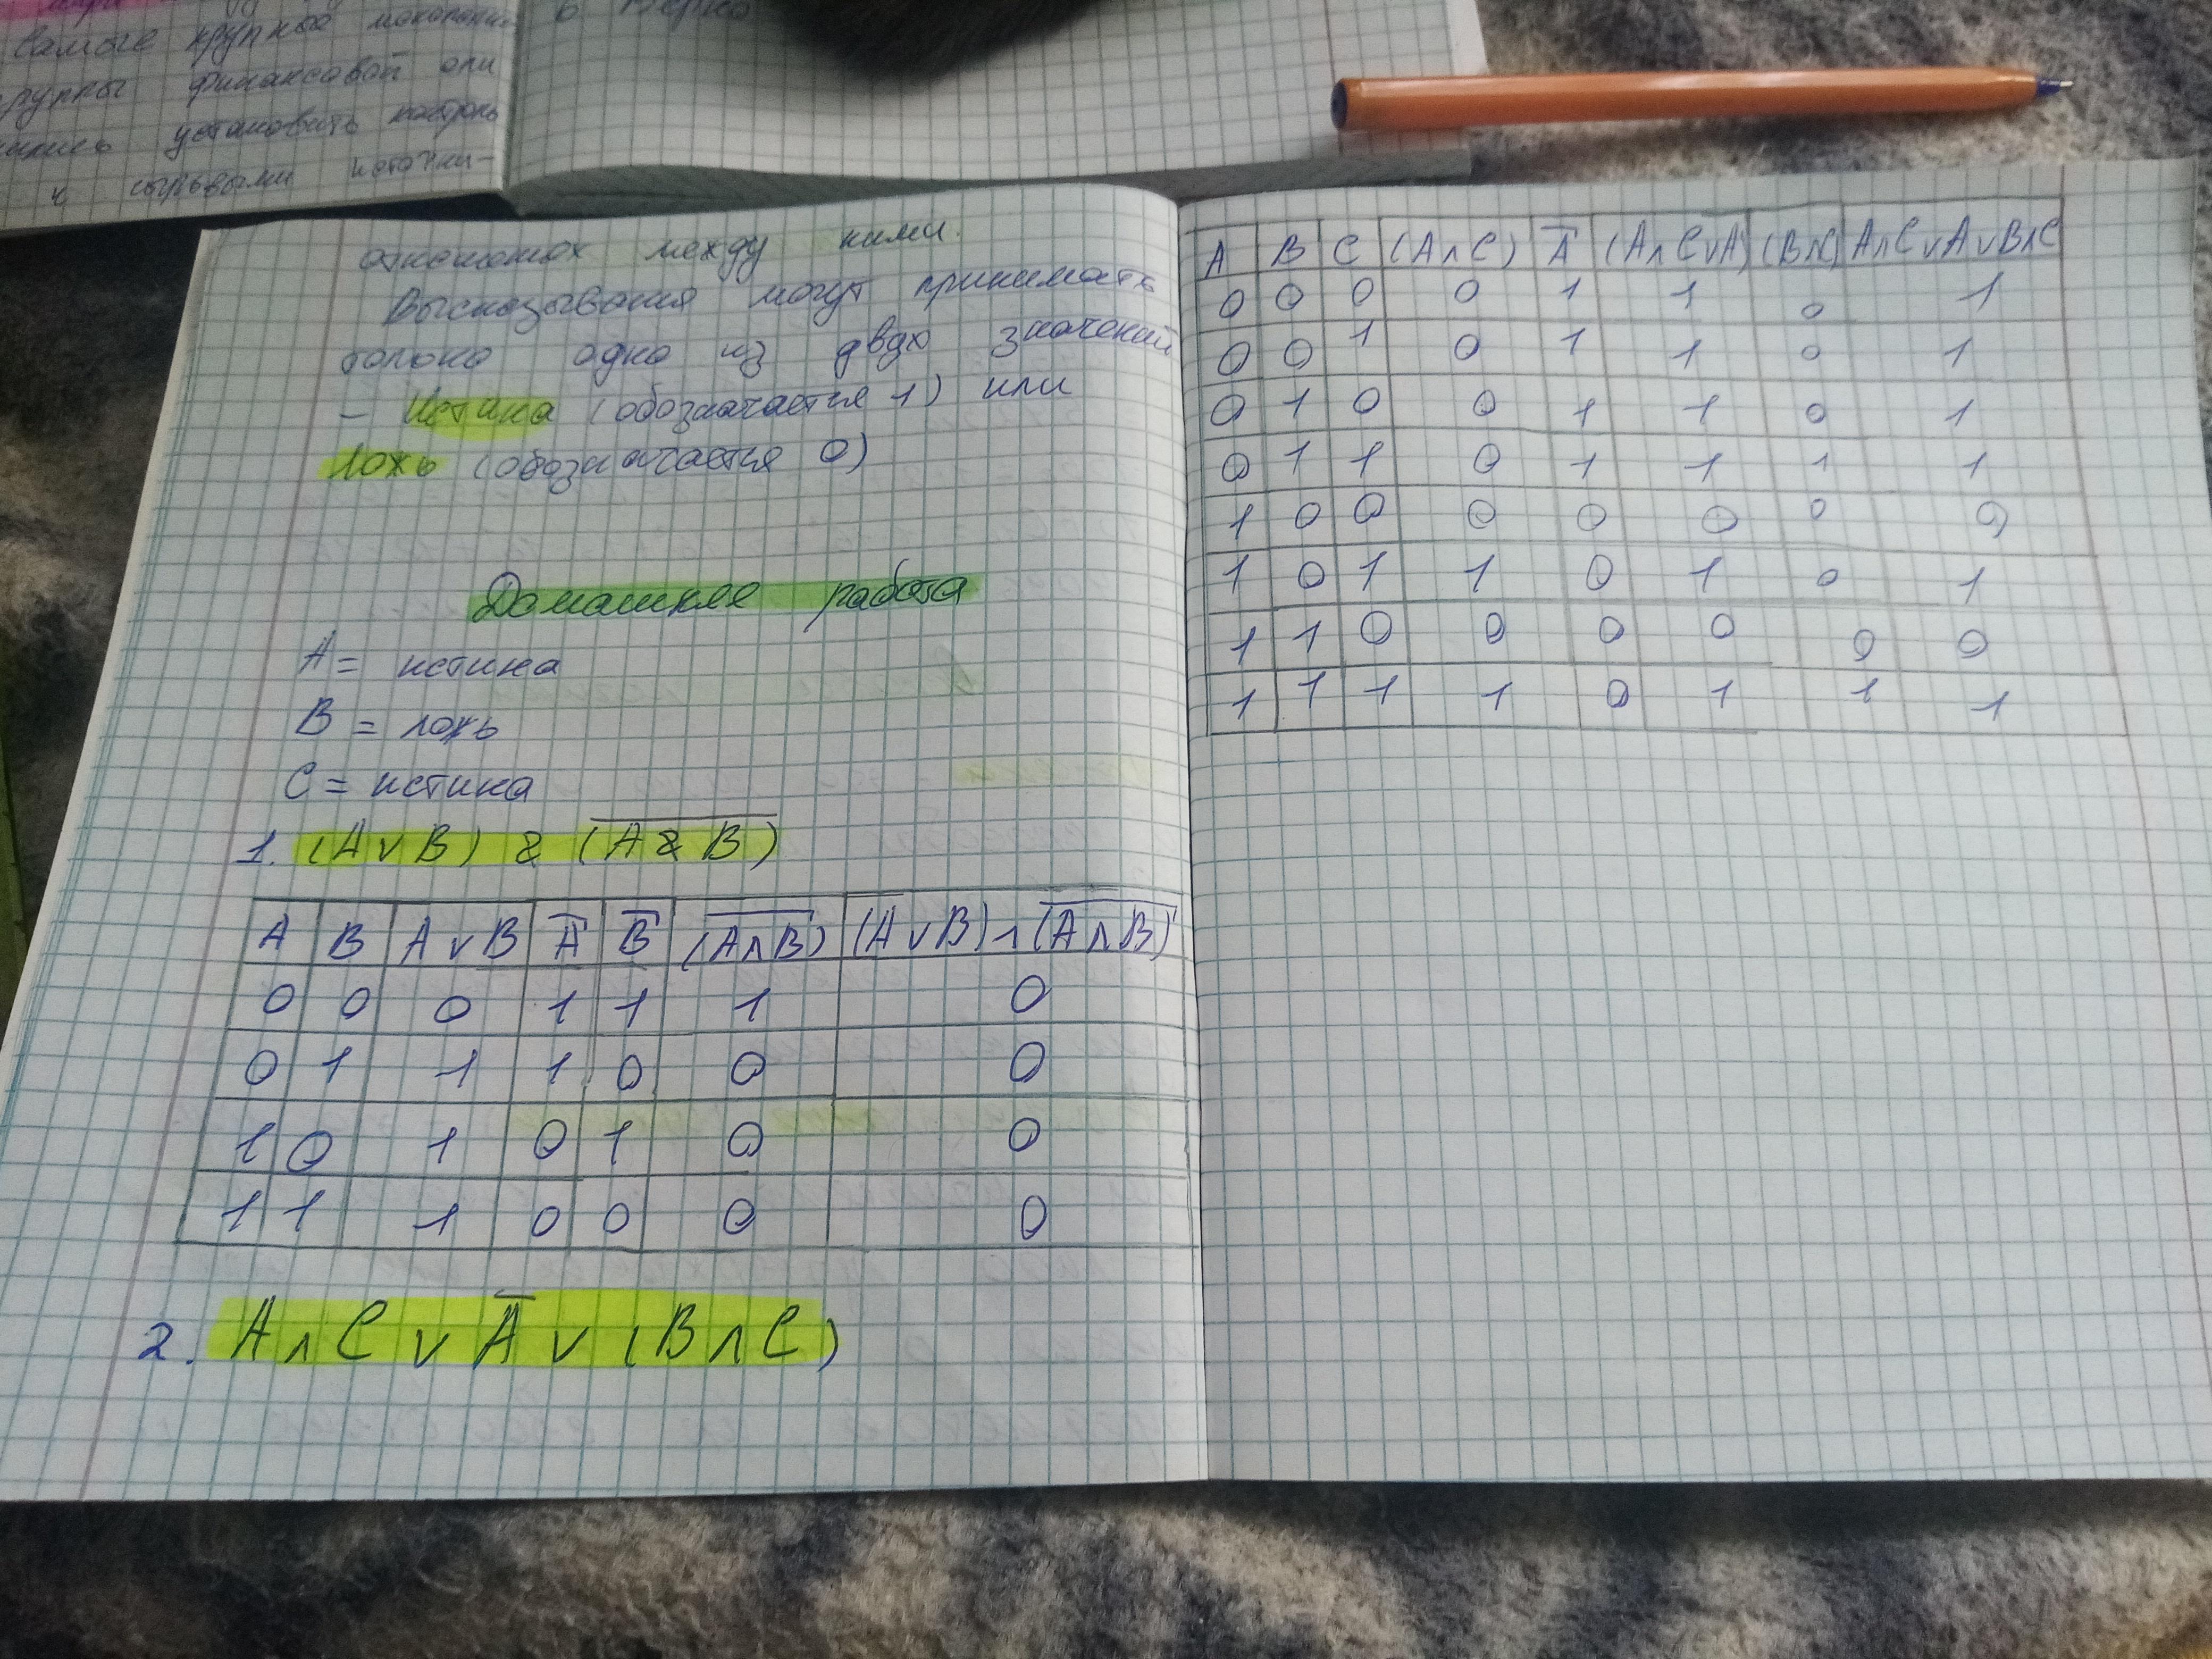 Самые крупные
группы финансовой или
установить контроль
сырьевыми источни-
между ними.
Высказывания могут принимать
только одно из двух значений
- Истина (обозначается 1) или
Ложь (обозначается 0)
Домашняя работа
A = истина
B = ложь
C = истина
1. (A ∨ B) & (A̅ ̅&̅ ̅B̅)
A B A ∨ B A̅ B̅ (A̅ ̅∧̅ ̅B̅) (A ∨ B) ∧ (A̅ ̅∧̅ ̅B̅)
0 0 0 1 1 1 0
0 1 1 1 0 0 0
1 0 1 0 1 0 0
1 1 1 0 0 0 0
2. A ∧ C ∨ A̅ ∨ (B ∧ C)
A B C (A ∧ C) A̅ (A ∧ C ∨ A̅) (B ∧ C) A ∧ C ∨ A ∨ B ∧ C
0 0 0 0 1 1 0 1
0 0 1 0 1 1 0 1
0 1 0 0 1 1 0 1
0 1 1 0 1 1 1 1
1 0 0 0 0 0 0 0
1 0 1 1 0 1 0 1
1 1 0 0 0 0 0 0
1 1 1 1 0 1 1 1